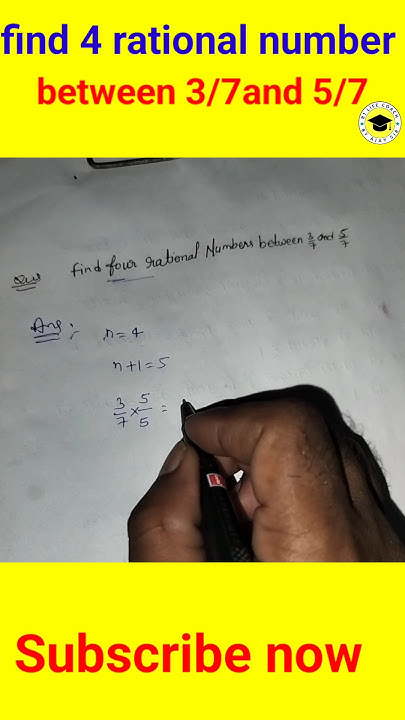 find 4 rational number
between 3/7and 5/7
Ques find four rational Numbers between 3/7 and 5/7
Ans:
n=4
n+1=5
3/7 × 5/5 =
Subscribe now